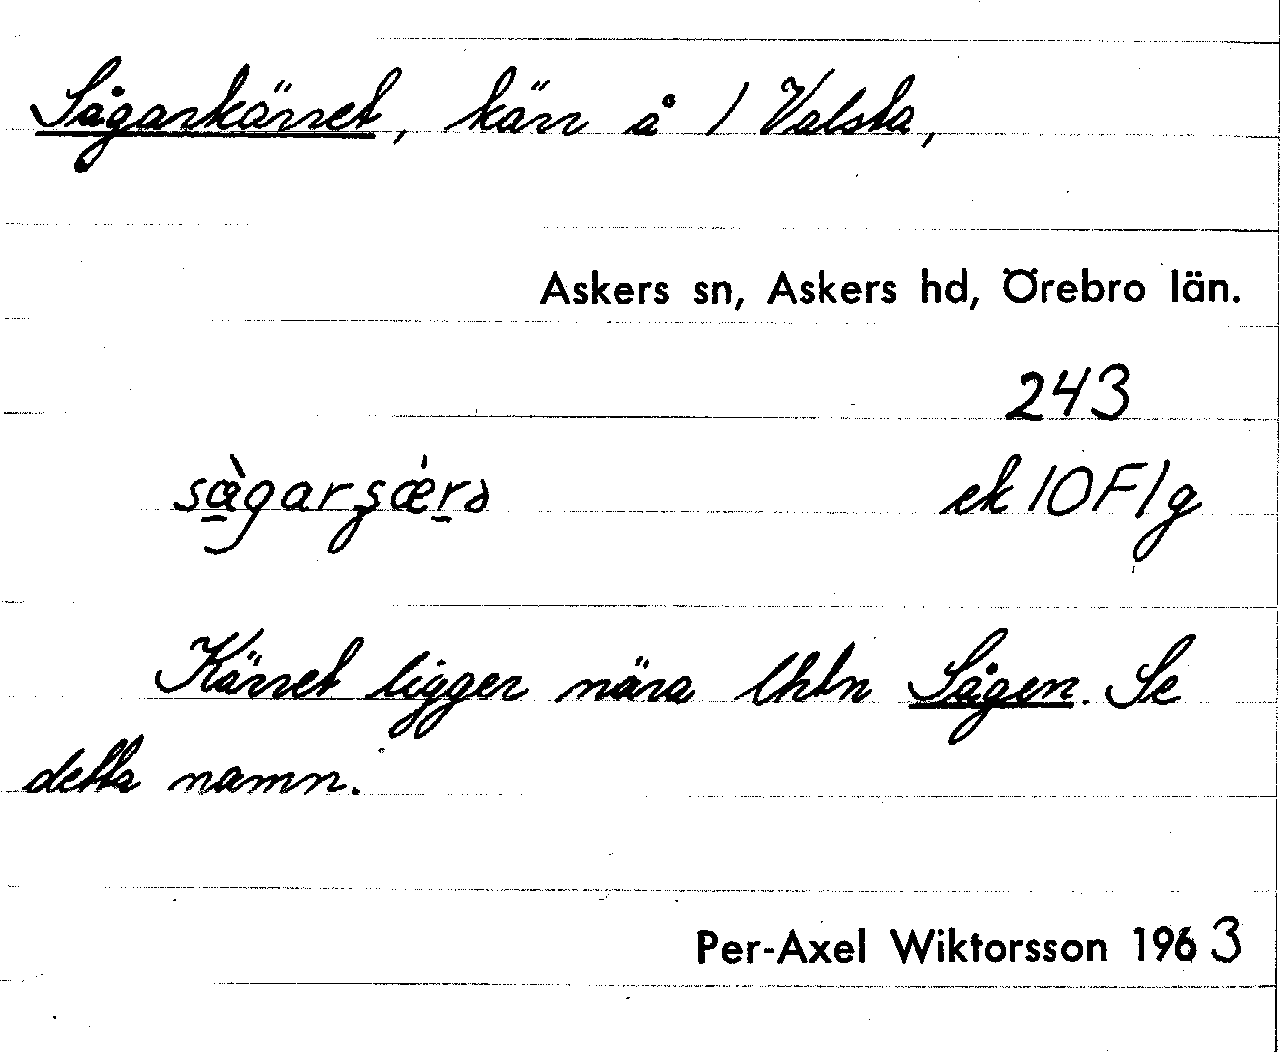 Sågarkärret, kärr å 1 Valsta,
Askers sn, Askers hd, Örebro län.
243
ek 10F1g
Kärret ligger nära lhtn Sågen. Se
detta namn.
Per-Axel Wiktorsson 1963